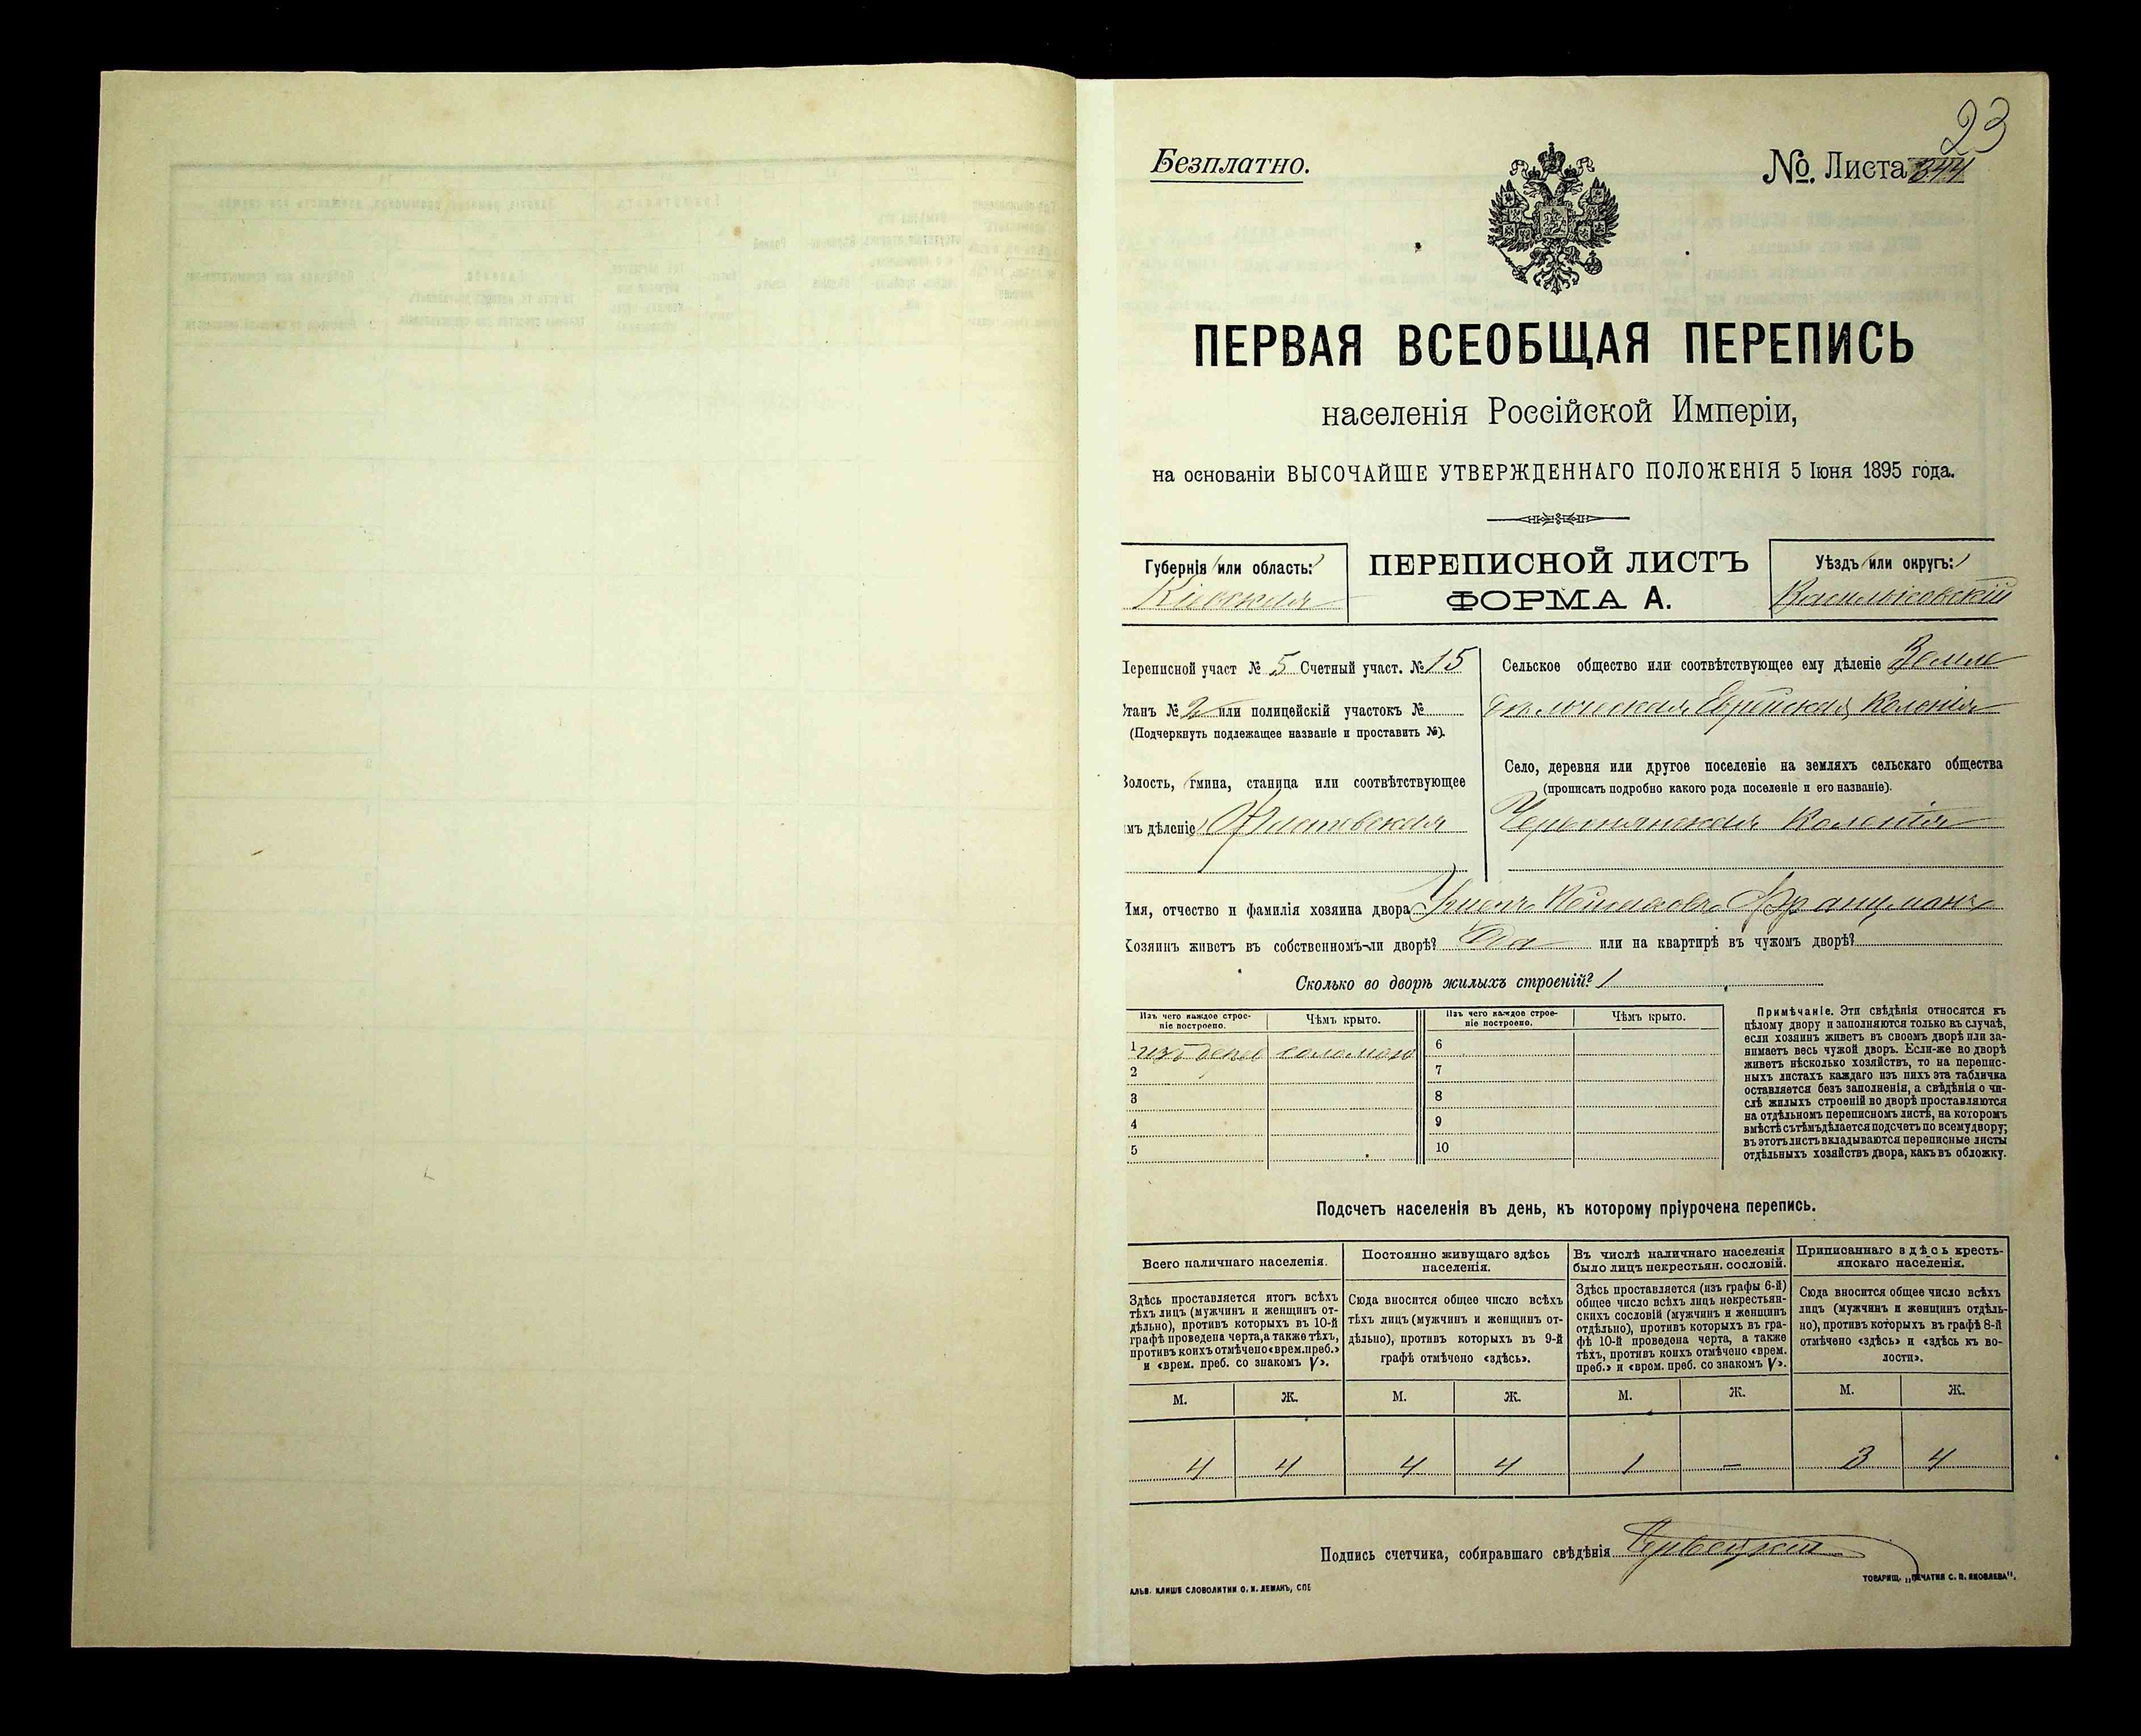 23
Безплатно.
№. Листа 344
ПЕРВАЯ ВСЕОБЩАЯ ПЕРЕПИСЬ
населенія Россійской Имперіи,
на основаніи ВЫСОЧАЙШЕ УТВЕРЖДЕННАГО ПОЛОЖЕНІЯ 5 Іюня 1895 года.
Губернія (или область:)
Кіевская
ПЕРЕПИСНОЙ ЛИСТЪ
ФОРМА А.
Уѣздъ (или округъ:)
Васильковскій
Переписной участ № 5 Счетный участ. № 15
Станъ № 2 или полицейскій участокъ №
(Подчеркнуть подлежащее названіе и проставить №).
Волость, (гмина, станица или соотвѣтствующее
имъ дѣленіе)
Сельское общество или соотвѣтствующее ему дѣленіе Земле
дѣльческая Еврейская Колонія
Село, деревня или другое поселеніе на земляхъ сельскаго общества
(прописать подробно какого рода поселеніе и его названіе).
Червонянская Колонія
Имя, отчество и фамилія хозяина двора
Хозяинъ живетъ въ собственномъ-ли дворѣ? Да или на квартирѣ въ чужомъ дворѣ?
Сколько во дворѣ жилыхъ строеній? 1
Изъ чего каждое строе-
ніе построено.
Чѣмъ крыто.
Изъ чего каждое строе-
ніе построено.
Чѣмъ крыто.
1 изъ дерев соломою
6
2
7
3
8
4
9
5
10
Примѣчаніе. Эти свѣдѣнія относятся къ
цѣлому двору и заполняются только въ случаѣ,
если хозяинъ живетъ въ своемъ дворѣ или за-
нимаетъ весь чужой дворъ. Если-же во дворѣ
живетъ нѣсколько хозяйствъ, то на перепис-
ныхъ листахъ каждаго изъ нихъ эта табличка
оставляется безъ заполненія, а свѣдѣнія о чи-
слѣ жилыхъ строеній во дворѣ проставляются
на отдѣльномъ переписномъ листѣ, на которомъ
вмѣстѣ съ тѣмъ дѣлается подсчетъ по всему двору;
въ этотъ листъ вкладываются переписные листы
отдѣльныхъ хозяйствъ двора, какъ въ обложку.
Подсчетъ населенія въ день, къ которому пріурочена перепись.
Всего наличнаго населенія.
Здѣсь проставляется итогъ всѣхъ
тѣхъ лицъ (мужчинъ и женщинъ от-
дѣльно), противъ которыхъ въ 10-й
графѣ проведена черта, а также тѣхъ,
противъ коихъ отмѣчено «врем. преб.»
и «врем. преб. со знакомъ V».
Постоянно живущаго здѣсь
населенія.
Сюда вносится общее число всѣхъ
тѣхъ лицъ (мужчинъ и женщинъ от-
дѣльно), противъ которыхъ въ 9-й
графѣ отмѣчено «здѣсь».
Въ числѣ наличнаго населенія
было лицъ некрестьян. сословій.
Здѣсь проставляется (изъ графы 6-й)
общее число всѣхъ лицъ некрестьян-
скихъ сословій (мужчинъ и женщинъ
отдѣльно), противъ которыхъ въ гра-
фѣ 10-й проведена черта, а также
тѣхъ, противъ коихъ отмѣчено «врем.
преб.» и «врем. преб. со знакомъ V».
Приписаннаго здѣсь кресть-
янскаго населенія.
Сюда вносится общее число всѣхъ
лицъ (мужчинъ и женщинъ отдѣль-
но), противъ которыхъ въ графѣ 8-й
отмѣчено «здѣсь» и «здѣсь въ во-
лости».
М. Ж. М. Ж. М. Ж. М. Ж.
4 4 4 4 1 — 3 4
Подпись счетчика, собиравшаго свѣдѣнія
АЛЬВ. КЛИШЕ СЛОВОЛИТНИ О. И. ЛЕМАНЪ, СПБ
ТОВАРИЩ. „ПЕЧАТНЯ С. П. ЯКОВЛЕВА".